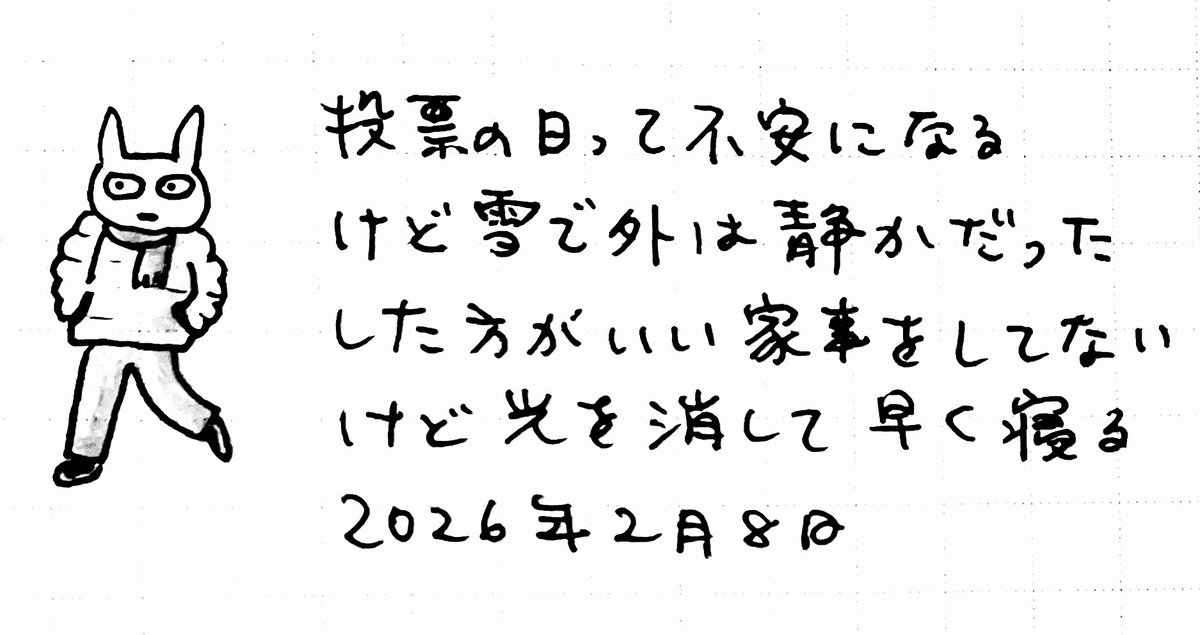 投票の日って不安になる
けど雪で外は静かだった
した方がいい家事をしてない
けど光を消して早く寝る
2026年2月8日